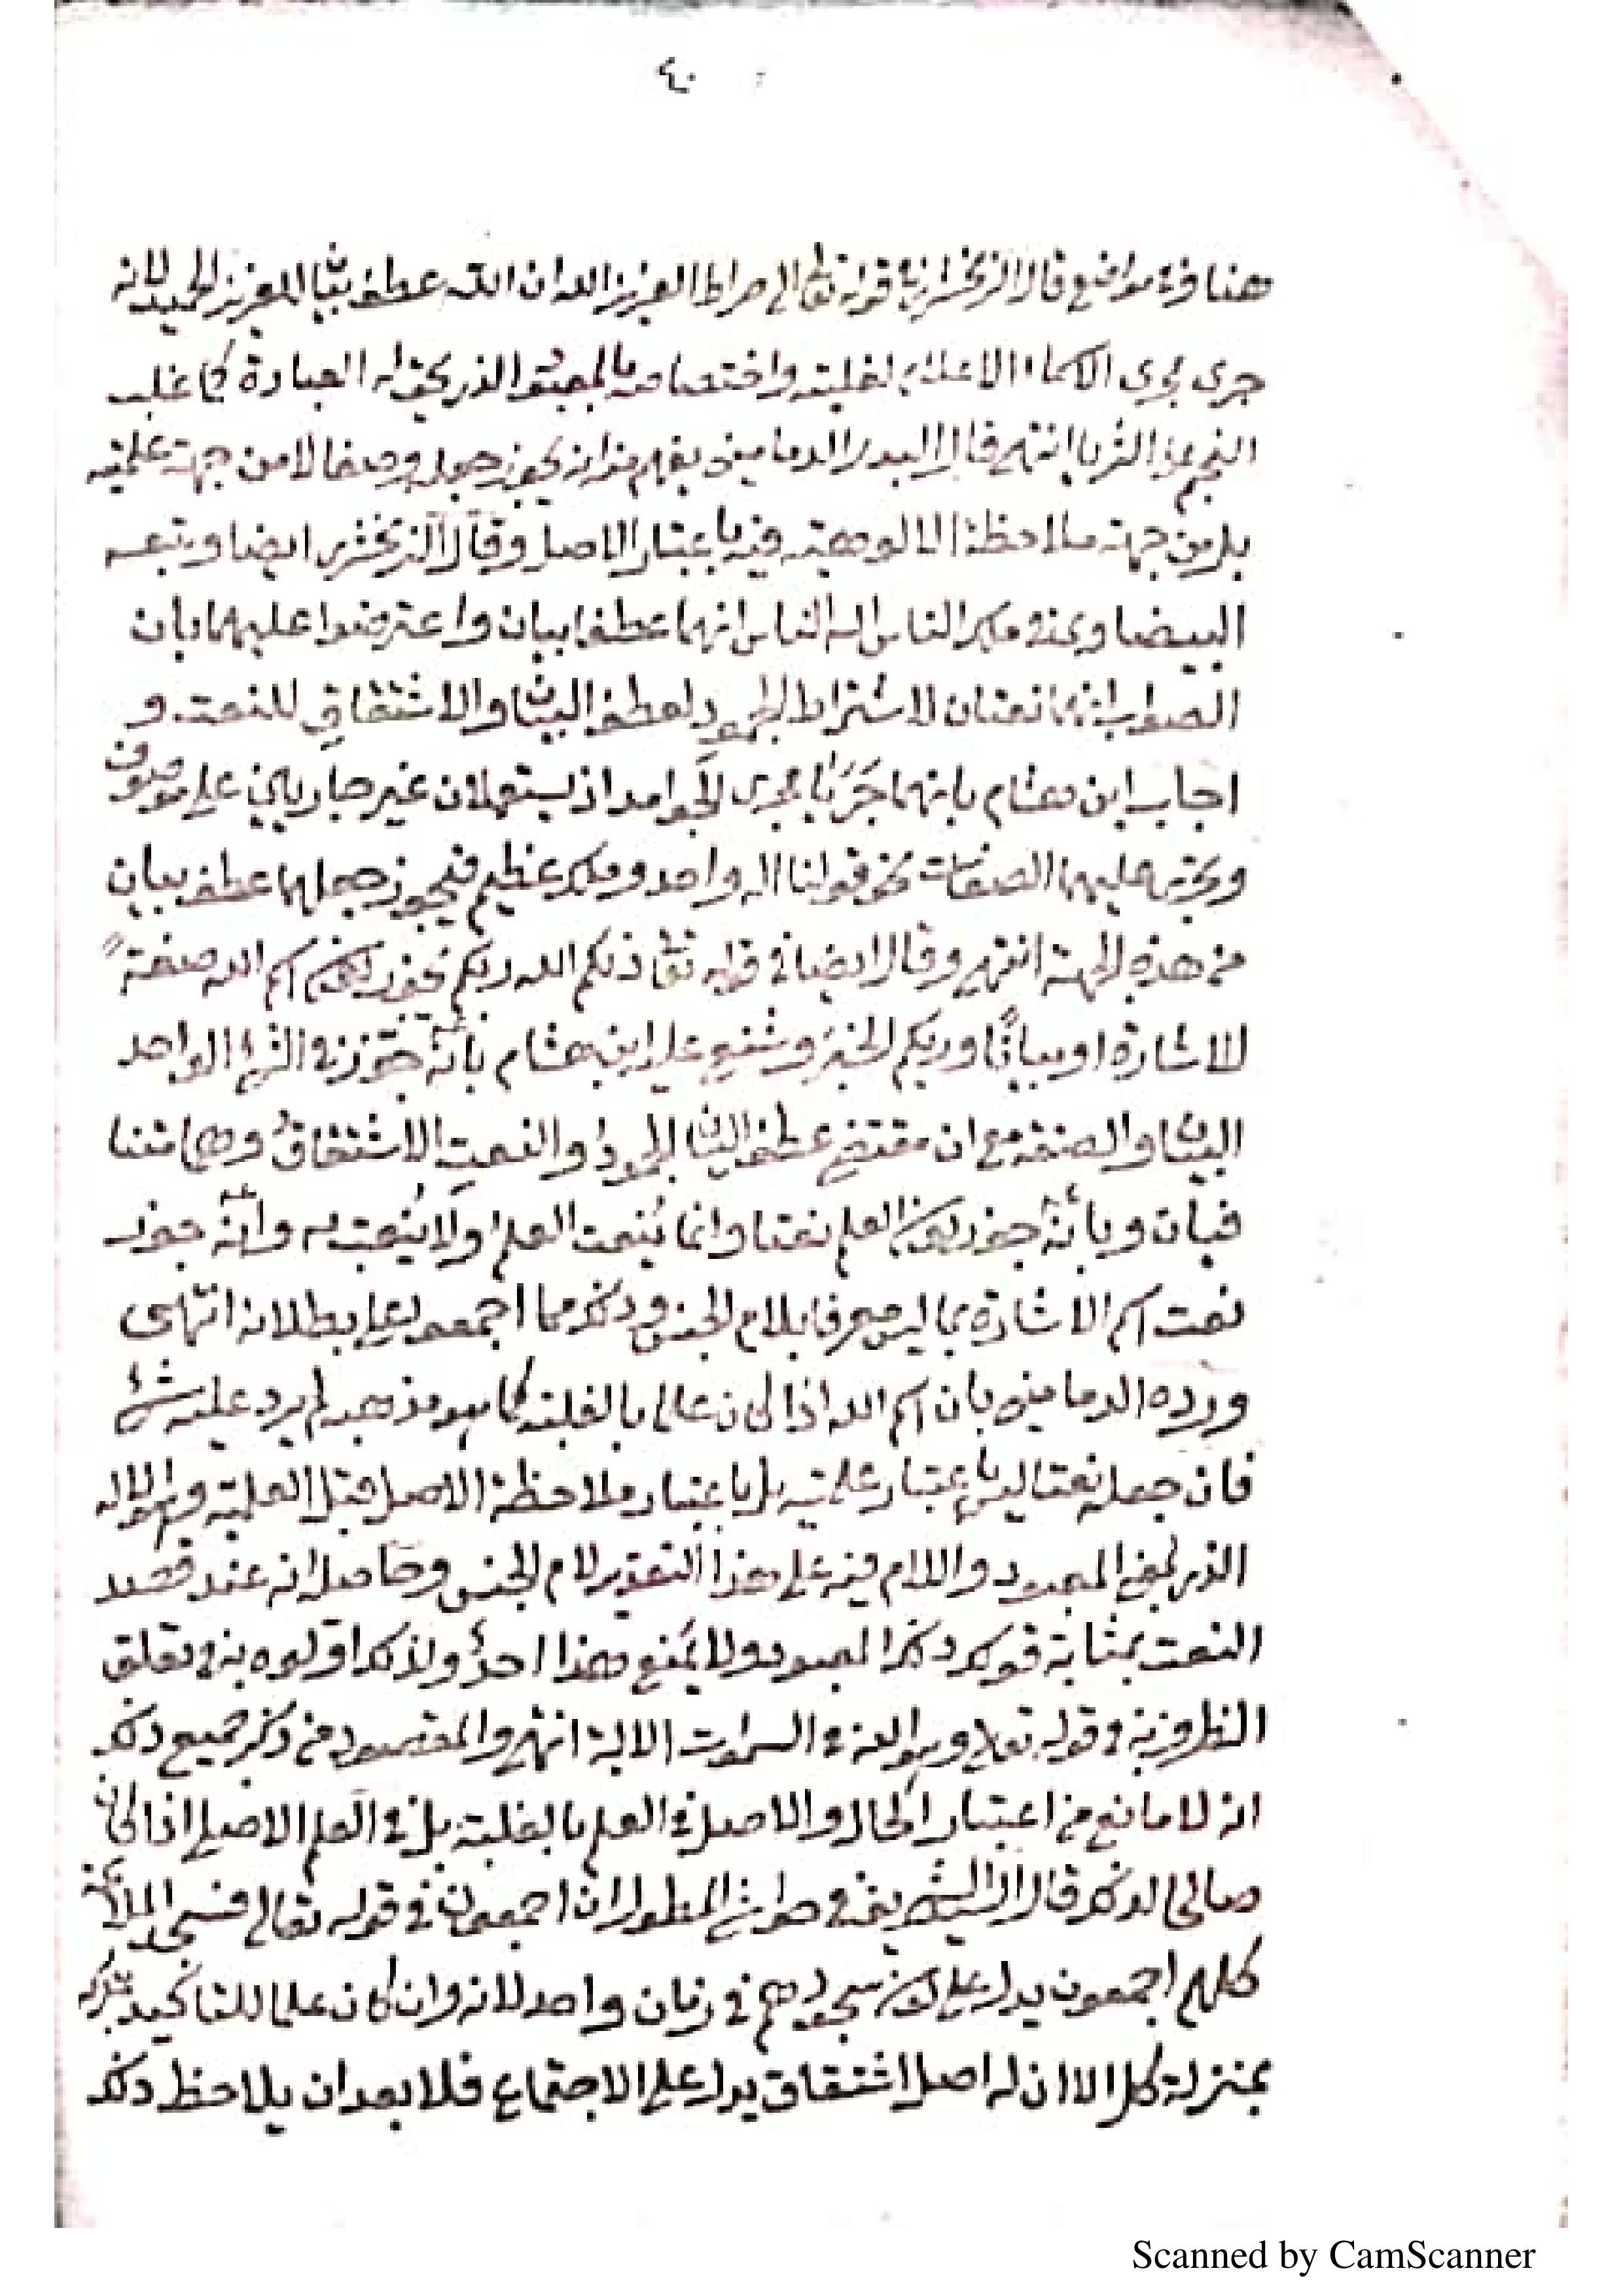 ٤٠
هنا وفي مواضع قال الزمخشري في قوله تعالى الى صراط العزيز الله ان الله عطف بيان للعزيز الحميد لانه
جرى مجرى الاسماء الاعلام لغلبته واختصاصه بالمعبود الذي يحق له العبادة كما غلب
النجم على الثريا انتهى قال البدر الدماميني يفهم منه انه يجوز جعله وصفا لا من جهة علميته
بل من جهة ملاحظة الالوهية فيه باعتبار الاصل وقال الزمخشري ايضا وتبعه
البيضاوي في ملك الناس اله الناس انهما عطفا بيان واعترضوا عليهما بأن
الصواب انهما نعتان لاشتراط الجمود لعطف البيان والاشتقاق للنعت و
اجاب ابن هشام بانهما جَرَيَا مجرى الجوامد اذ يستعملان غير جاريين على موصوف
وتجرى عليهما الصفات نحو قولنا اله واحد وملك عظيم فيجوز جعلهما عطف بيان
من هذه الجهة انتهى وقال ايضا في قوله تعا ذلكم الله ربكم يجوز كون اسم الله صفة
للاشارة او بيانًا وربكم الخبر وشنع عليه ابن هشام بأنه جوّز في الشئ الواحد
البيان والصفة مع ان مقتضى عطف البيان الجمود والنعت الاشتقاق وهما متنا
فيان وبأنه جوز كون العلم نعتا وانما يُنعت العلم ولا يُنعت به وانه جوز
نعت اسم الاشارة بما ليس معرفا بلام الجنس وذلك مما اجمعوا على بطلانه انتهى
ورده الدماميني بان اسم الله اذا كان علما بالغلبة كما هو مذهبه لم يرد عليه شئ
فان جعله نعتا ليس باعتبار علميته بل باعتبار ملاحظة الاصل قبل العلمية وهو الاله
الذي بمعنى المعبود واللام فيه على هذا التقدير لام الجنس وحاصله انه عند قصد
النعت بمثابة قولك ذلك المعبود ولا يمنع هذا احدٌ ولذلك اولوه به في تعلق
الظرف به في قوله تعالى وهو الله في السموات الاية انتهى والمقصود من ذكر جميع ذلك
انه لا مانع من اعتبار الحال والاصل في العلم بالغلبة بل في العلم الاصلى اذا كان
صالحا لذلك قال الشريف في حواشى المطول ان اجمعون في قوله تعالى فسجد الملائكة
كلهم اجمعون يدل على كون سجودهم في زمان واحد لانه وان كان علما للتاكيد
بمنزلة كل الا ان له اصل اشتقاق يدل على الاجتماع فلا بعد ان يلاحظ ذلك
Scanned by CamScanner